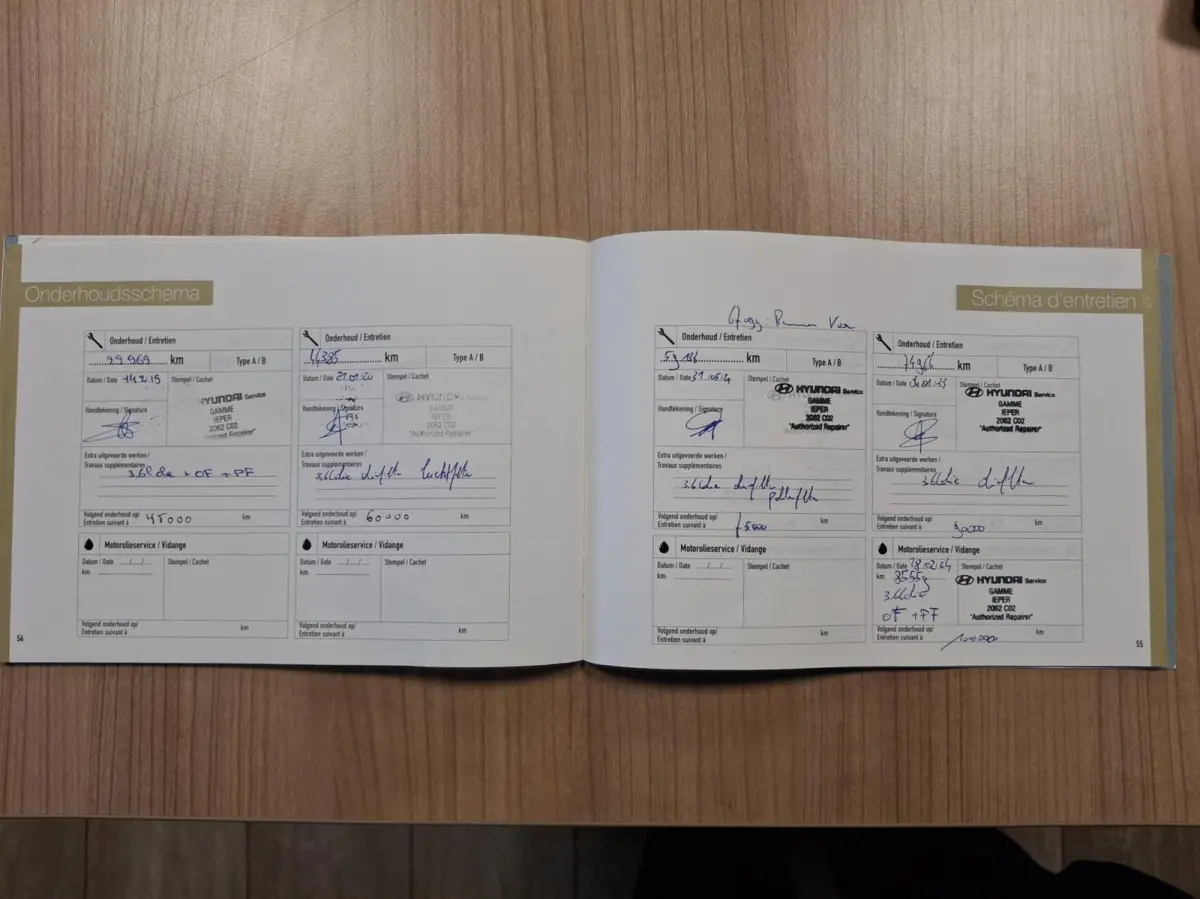 Onderhoudsschema
Onderhoud / Entretien
99.969 km
Type A / B
Datum / Date 14 2 19
Stempel / Cachet
HYUNDAI Service
GAMME
IEPER
2062 C02
"Authorized Repairer"
Handtekening / Signature
Extra uitgevoerde werken /
Travaux supplémentaires
3.6l olie + OF + PF
Volgend onderhoud op/
Entretien suivant à 45000 km
Motorolieservice / Vidange
Datum / Date _/_/_
Stempel / Cachet
km
Volgend onderhoud op/
Entretien suivant à km
Onderhoud / Entretien
44385 km
Type A / B
Datum / Date
Stempel / Cachet
HYUNDAI
GAMME
IEPER
2062 C02
"Authorized Repairer"
Handtekening / Signature
Extra uitgevoerde werken /
Travaux supplémentaires
3.6l olie
Volgend onderhoud op/
Entretien suivant à 60000 km
Motorolieservice / Vidange
Datum / Date _/_/_
Stempel / Cachet
km
Volgend onderhoud op/
Entretien suivant à km
54
Schéma d'entretien
Onderhoud / Entretien
km
Type A / B
Datum / Date
Stempel / Cachet
HYUNDAI Service
GAMME
IEPER
2062 C02
"Authorized Repairer"
Handtekening / Signature
Extra uitgevoerde werken /
Travaux supplémentaires
3.6l olie
Volgend onderhoud op/
Entretien suivant à 75000 km
Motorolieservice / Vidange
Datum / Date _/_/_
Stempel / Cachet
km
Volgend onderhoud op/
Entretien suivant à km
Onderhoud / Entretien
km
Type A / B
Datum / Date
Stempel / Cachet
HYUNDAI Service
GAMME
IEPER
2062 C02
"Authorized Repairer"
Handtekening / Signature
Extra uitgevoerde werken /
Travaux supplémentaires
3.6l olie
Volgend onderhoud op/
Entretien suivant à 90000 km
Motorolieservice / Vidange
Datum / Date 28/02/24
Stempel / Cachet
km 85559
3.6l olie
OF + PF
HYUNDAI Service
GAMME
IEPER
2062 C02
"Authorized Repairer"
Volgend onderhoud op/
Entretien suivant à 100.000 km
55